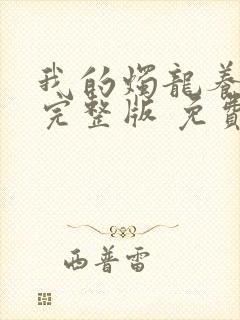 我的燭龍養
完整版 免費
西普雷